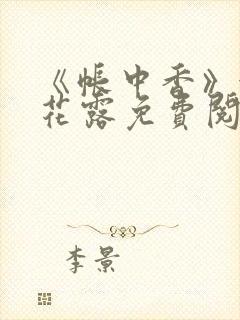 《帐中香》
花露免费阅
李景